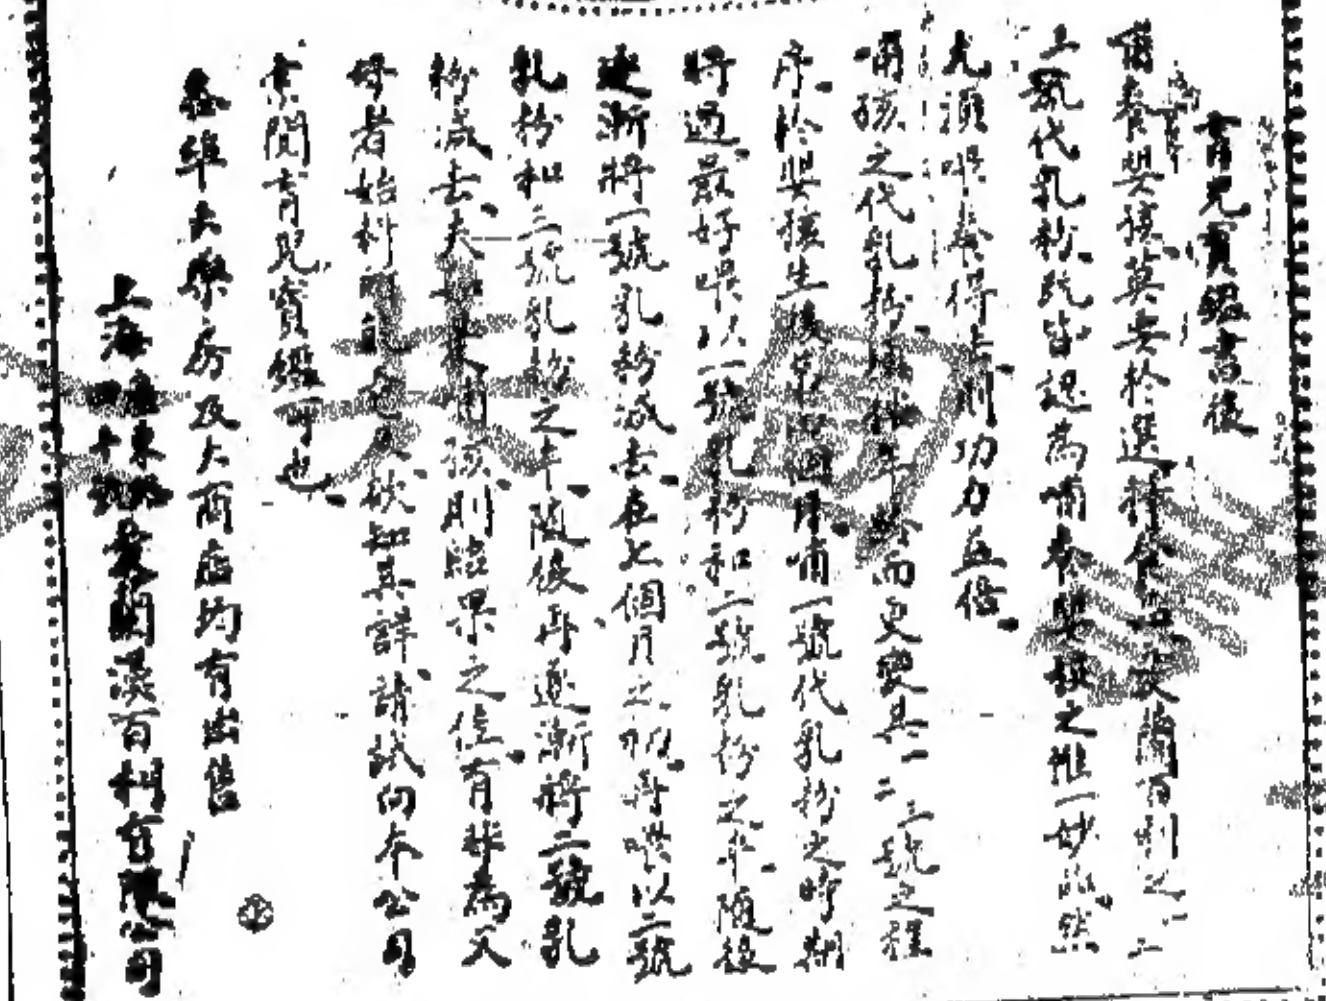 育兒寶鑑書後
育養嬰孩、莫要於選擇食品、愛蘭百利之一二
三號代乳粉、既皆認為哺養嬰孩之惟一妙品、然
尤須喂養得法、則功力益倍、
哺孩之代乳粉須按年齡而更變其一二三號之程
序、於嬰孩生後第四個月、哺一號代乳粉之時期
將過、最好喂以一號乳粉和二號乳粉之半、隨後
逐漸將一號乳粉減去、在七個月之初、再喂以二號
乳粉和三號乳粉之半、隨後再逐漸將二號乳
粉減去、夫如是哺孩、則結果之佳、有非為人
母者始料所能及也、欲知其詳、請試向本公司
索閱育兒寶鑑可也、
各埠大藥房及大商店均有出售
上海 愛蘭漢百利有限公司